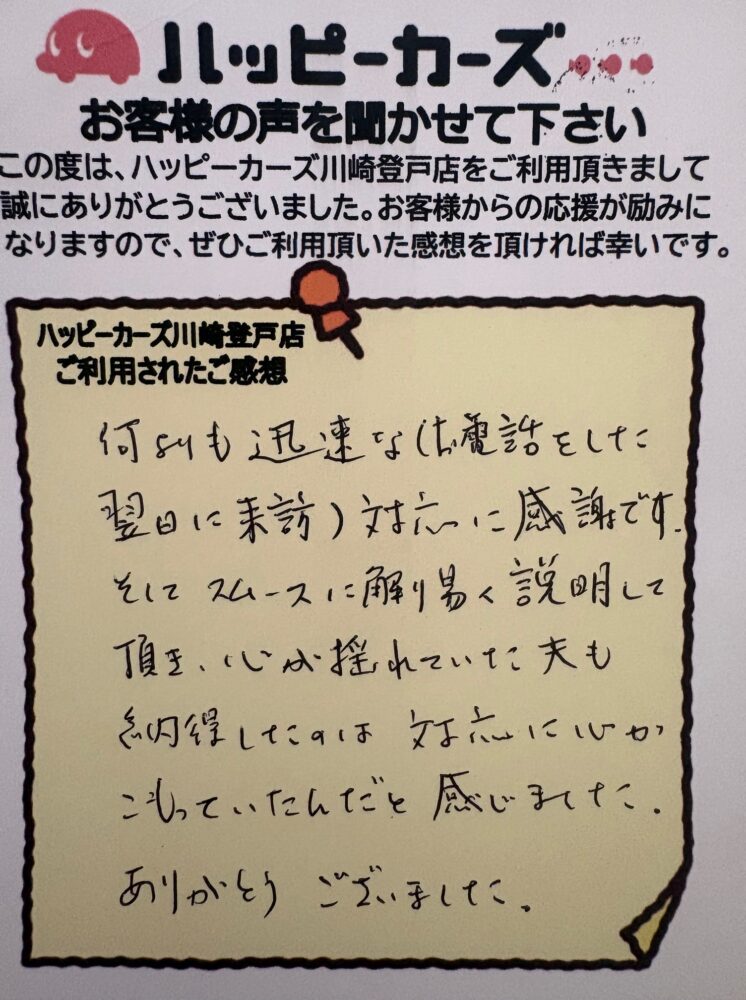 ハッピーカーズ
お客様の声を聞かせて下さい
この度は、ハッピーカーズ川崎登戸店をご利用頂きまして
誠にありがとうございました。お客様からの応援が励みに
なりますので、ぜひご利用頂いた感想を頂ければ幸いです。
ハッピーカーズ川崎登戸店
ご利用されたご感想
何よりも迅速な(お電話をした
翌日に来訪)対応に感謝です。
そしてスムースに解り易く説明して
頂き、心が揺れていた夫も
納得したのは対応に心が
こもっていたんだと感じました。
ありがとうございました。